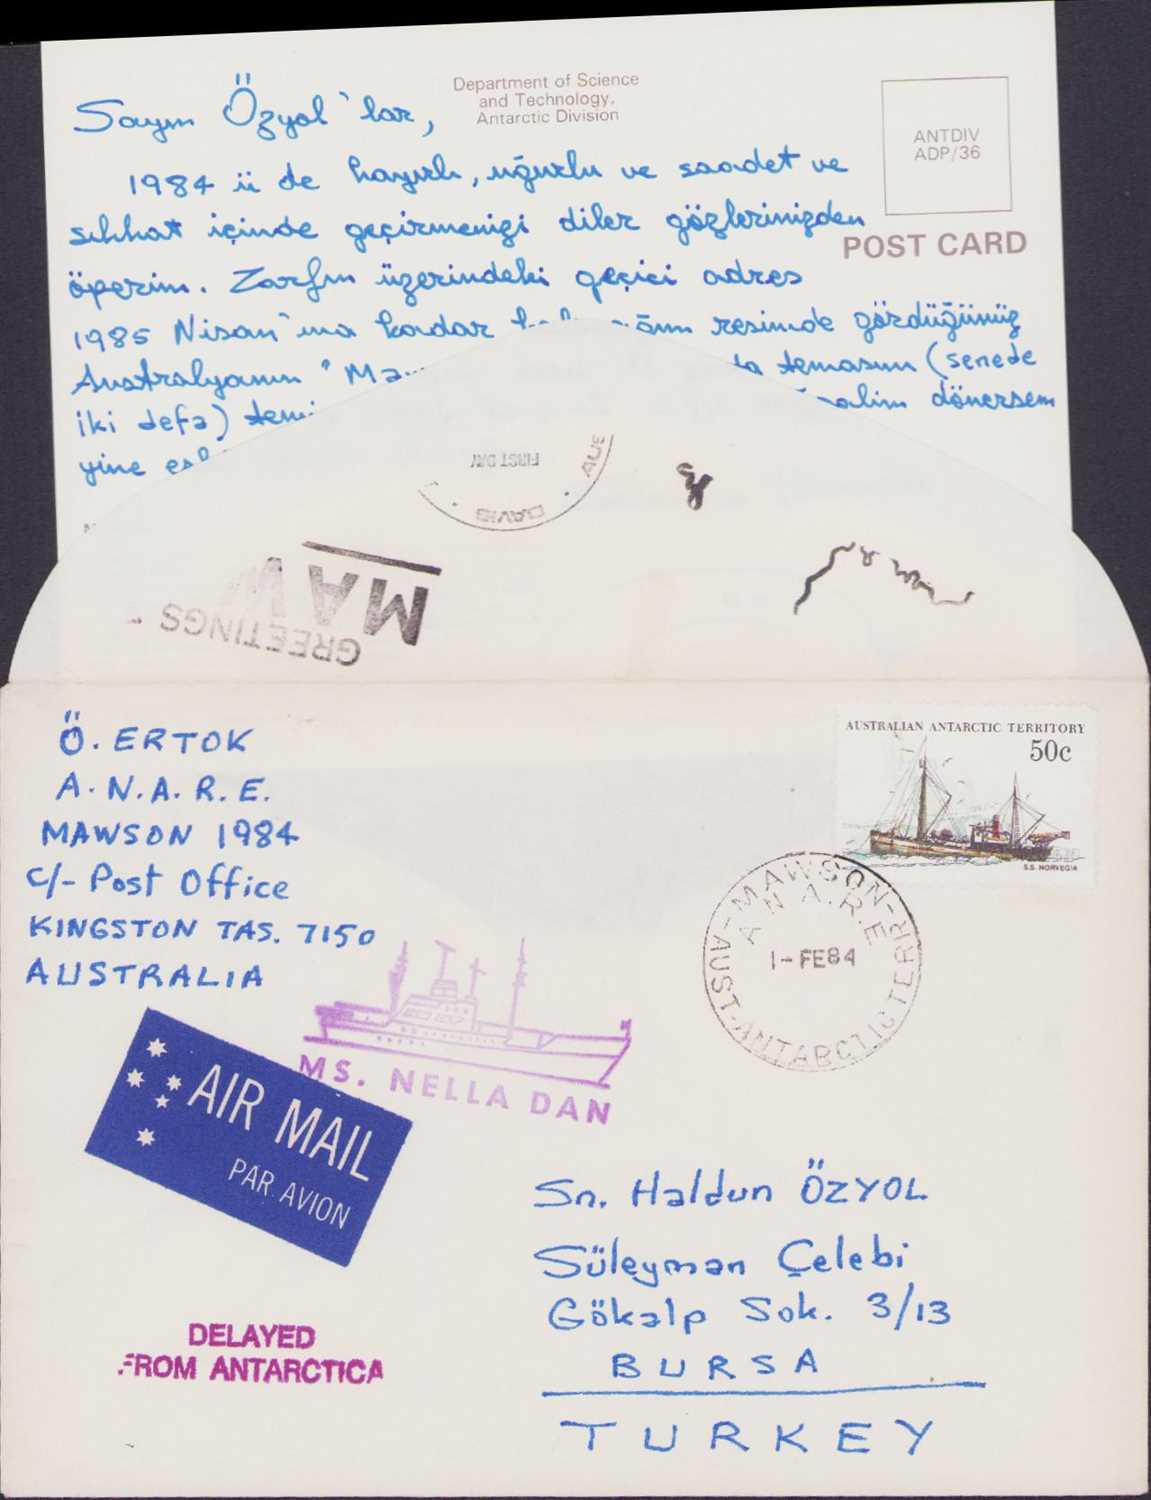 Department of Science
and Technology,
Antarctic Division
ANTDIV
ADP/36
POST CARD
Sayın Özyol'lar,
1984 ü de hayırlı, uğurlu ve saadet ve
sıhhat içinde geçirmenizi diler gözlerinizden
öperim. Zarfın üzerindeki geçici adres
1985 Nisan'ına kadar resimde gördüğünüz
Australyanın "Ma temasın (senede
iki defa) dönersem
yine
FIRST DAY
DAVIS
AUS
MAW
GREETINGS
Ö. ERTOK
A.N.A.R.E.
MAWSON 1984
c/- Post Office
KINGSTON TAS. 7150
AUSTRALIA
AUSTRALIAN ANTARCTIC TERRITORY
50c
S.S. NORVEGIA
MAWSON
A.N.A.R.E
1-FE84
AUST. ANTARCTIC TERR
MS. NELLA DAN
AIR MAIL
PAR AVION
DELAYED
FROM ANTARCTICA
Sn. Haldun ÖZYOL
Süleyman Çelebi
Gökalp Sok. 3/13
BURSA
TURKEY